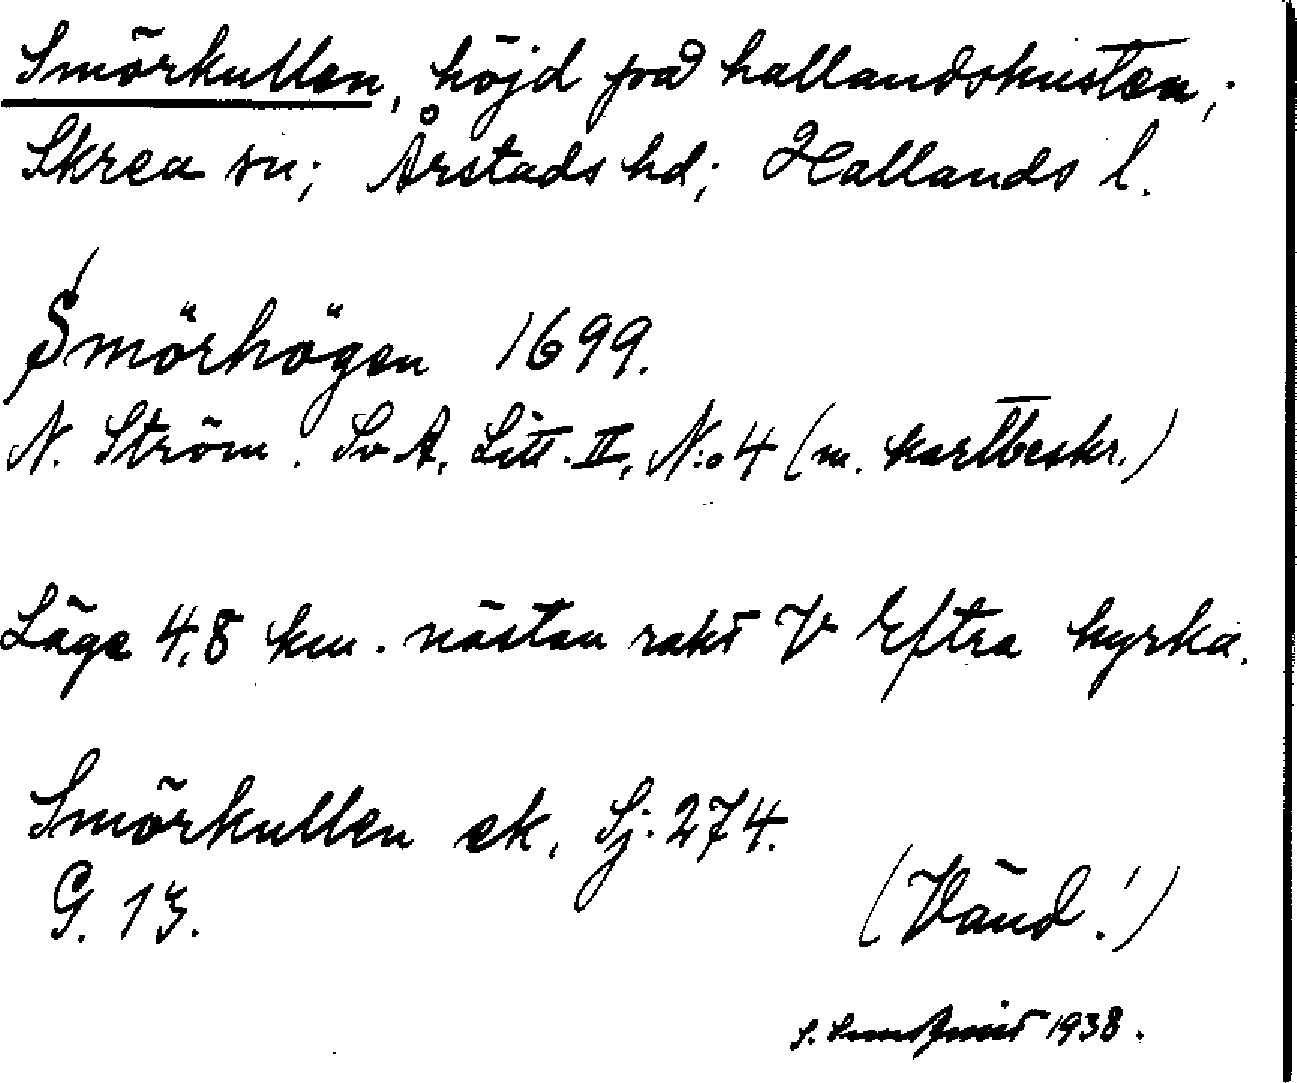 Smörkullen, höjd på hallandskusten,;
Skrea sn; Årstads hd; Hallands l.
Smörhögen 1699.
N. Ström. SvA, Litt. II, N:o 4 (m. kartbeskr.)
Läge 4,8 km. nästan rakt V Eftra kyrka.
Smörkullen ek, Sj. 274.
G. 13.
(Vänd!)
S. Sundqvist 1938.